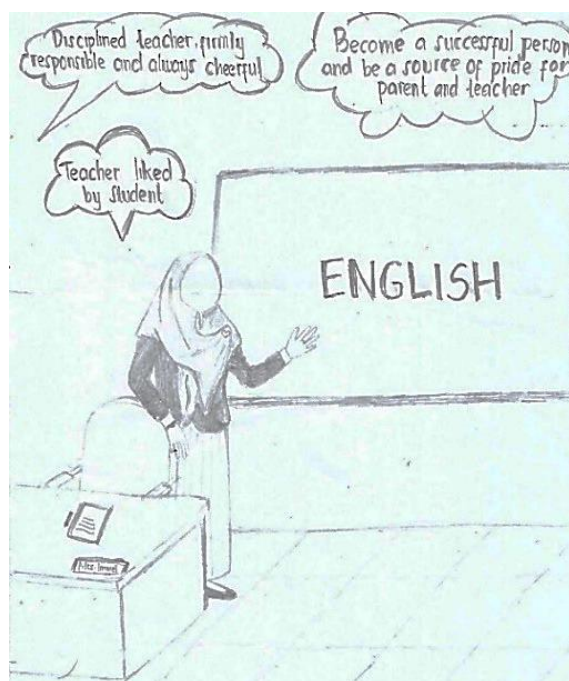 Disciplined teacher, firmly
responsible and always cheerful
Become a successful person
and be a source of pride for
parent and teacher
Teacher liked
by student
ENGLISH